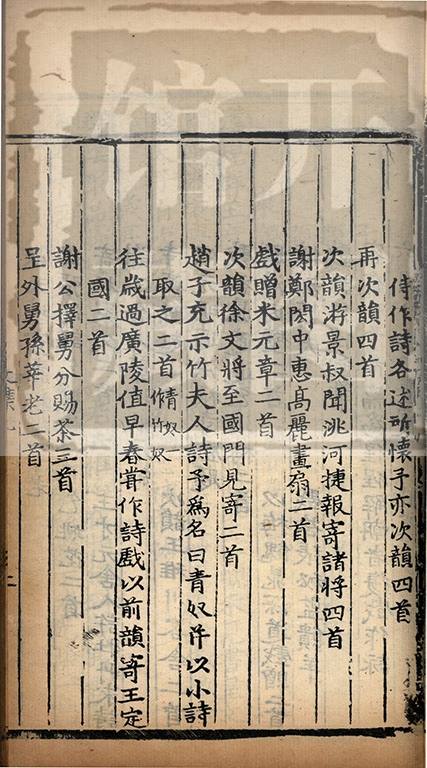 侍作詩各述所懷予亦次韻四首
再次韻四首
次韻游景叔聞洮河捷報寄諸將四首
謝鄭閎中惠高麗畫扇二首
戲贈米元章二首
次韻徐文將至國門見寄二首
趙子充示竹夫人詩予為名曰青奴并以小詩
取之二首 青奴一作竹奴
往歲過廣陵值早春甞作詩戲以前韻寄王定
國二首
謝公擇舅分賜茶三首
呈外舅孫莘老二首